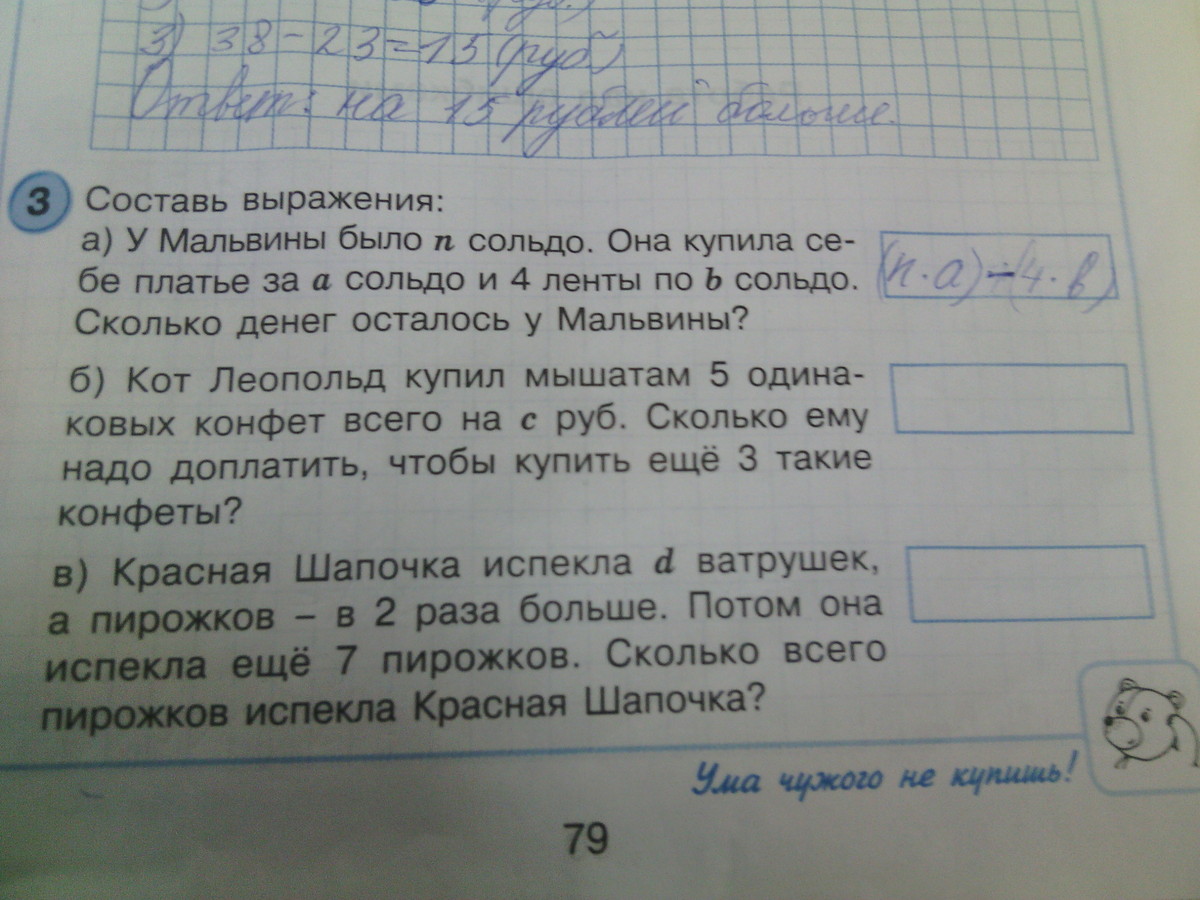 3) 38-23=15 (руб)
Ответ: на 15 рублей больше.
3 Составь выражения:
а) У Мальвины было n сольдо. Она купила се-
бе платье за a сольдо и 4 ленты по b сольдо.
Сколько денег осталось у Мальвины?
(n·a)-(4·b)
б) Кот Леопольд купил мышатам 5 одина-
ковых конфет всего на c руб. Сколько ему
надо доплатить, чтобы купить ещё 3 такие
конфеты?
в) Красная Шапочка испекла d ватрушек,
а пирожков – в 2 раза больше. Потом она
испекла ещё 7 пирожков. Сколько всего
пирожков испекла Красная Шапочка?
Ума чужого не купишь!
79